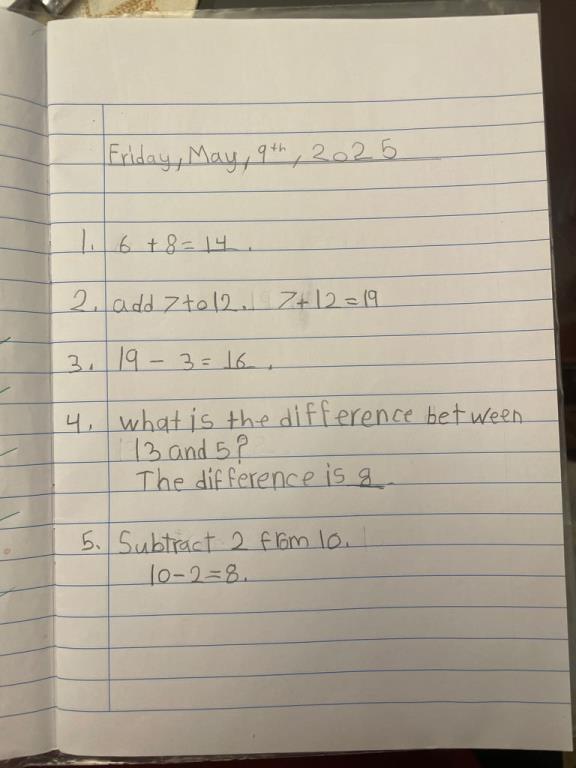 Friday, May, 9th, 2025
1. 6 + 8 = 14.
2. add 7 to 12. 7 + 12 = 19
3. 19 - 3 = 16.
4. what is the difference between
13 and 5?
The difference is 8.
5. Subtract 2 from 10.
10-2=8.